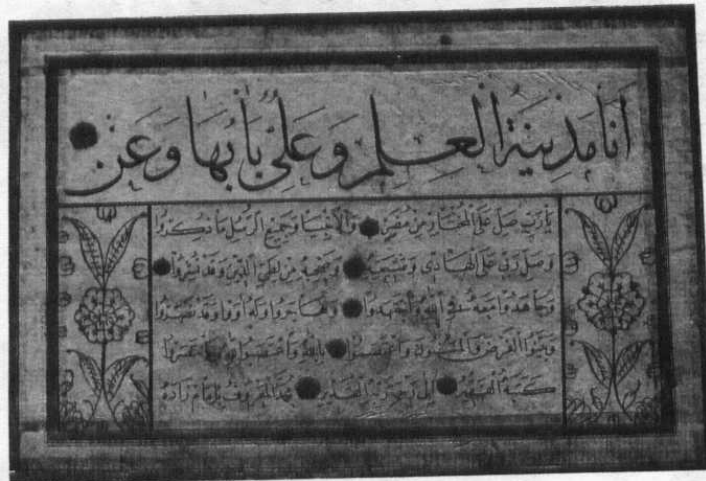 اَنَا مَدِينَةُ الْعِلْمِ وَعَلِيٌّ بَابُهَا وَعَنْ
يَا رَبِّ صَلِّ عَلَى الْمُخْتَارِ مِنْ مُضَرٍ وَالْاَنْبِيَا وَجَمِيعِ الرُّسْلِ مَا ذُكِرُوا
وَصَلِّ رَبِّ عَلَى الْهَادِي وَشِيعَتِهِ وَصَحْبِهِ مَنْ لِطَيِّ الدِّينِ قَدْ نَشَرُوا
وَجَاهَدُوا مَعَهُ فِي اللّٰهِ وَاجْتَهَدُوا وَهَاجَرُوا وَلَهُ اٰوَوْا وَقَدْ نَصَرُوا
وَبَيَّنُوا الْفَرْضَ وَالْمَسْنُونَ وَاعْتَصَبُوا
كَتَبَهُ الْفَقِيرُ اِلٰى رَحْمَةِ رَبِّهِ الْقَدِيرِ الْمَعْرُوفُ بِاِمَامْ زَادَهْ